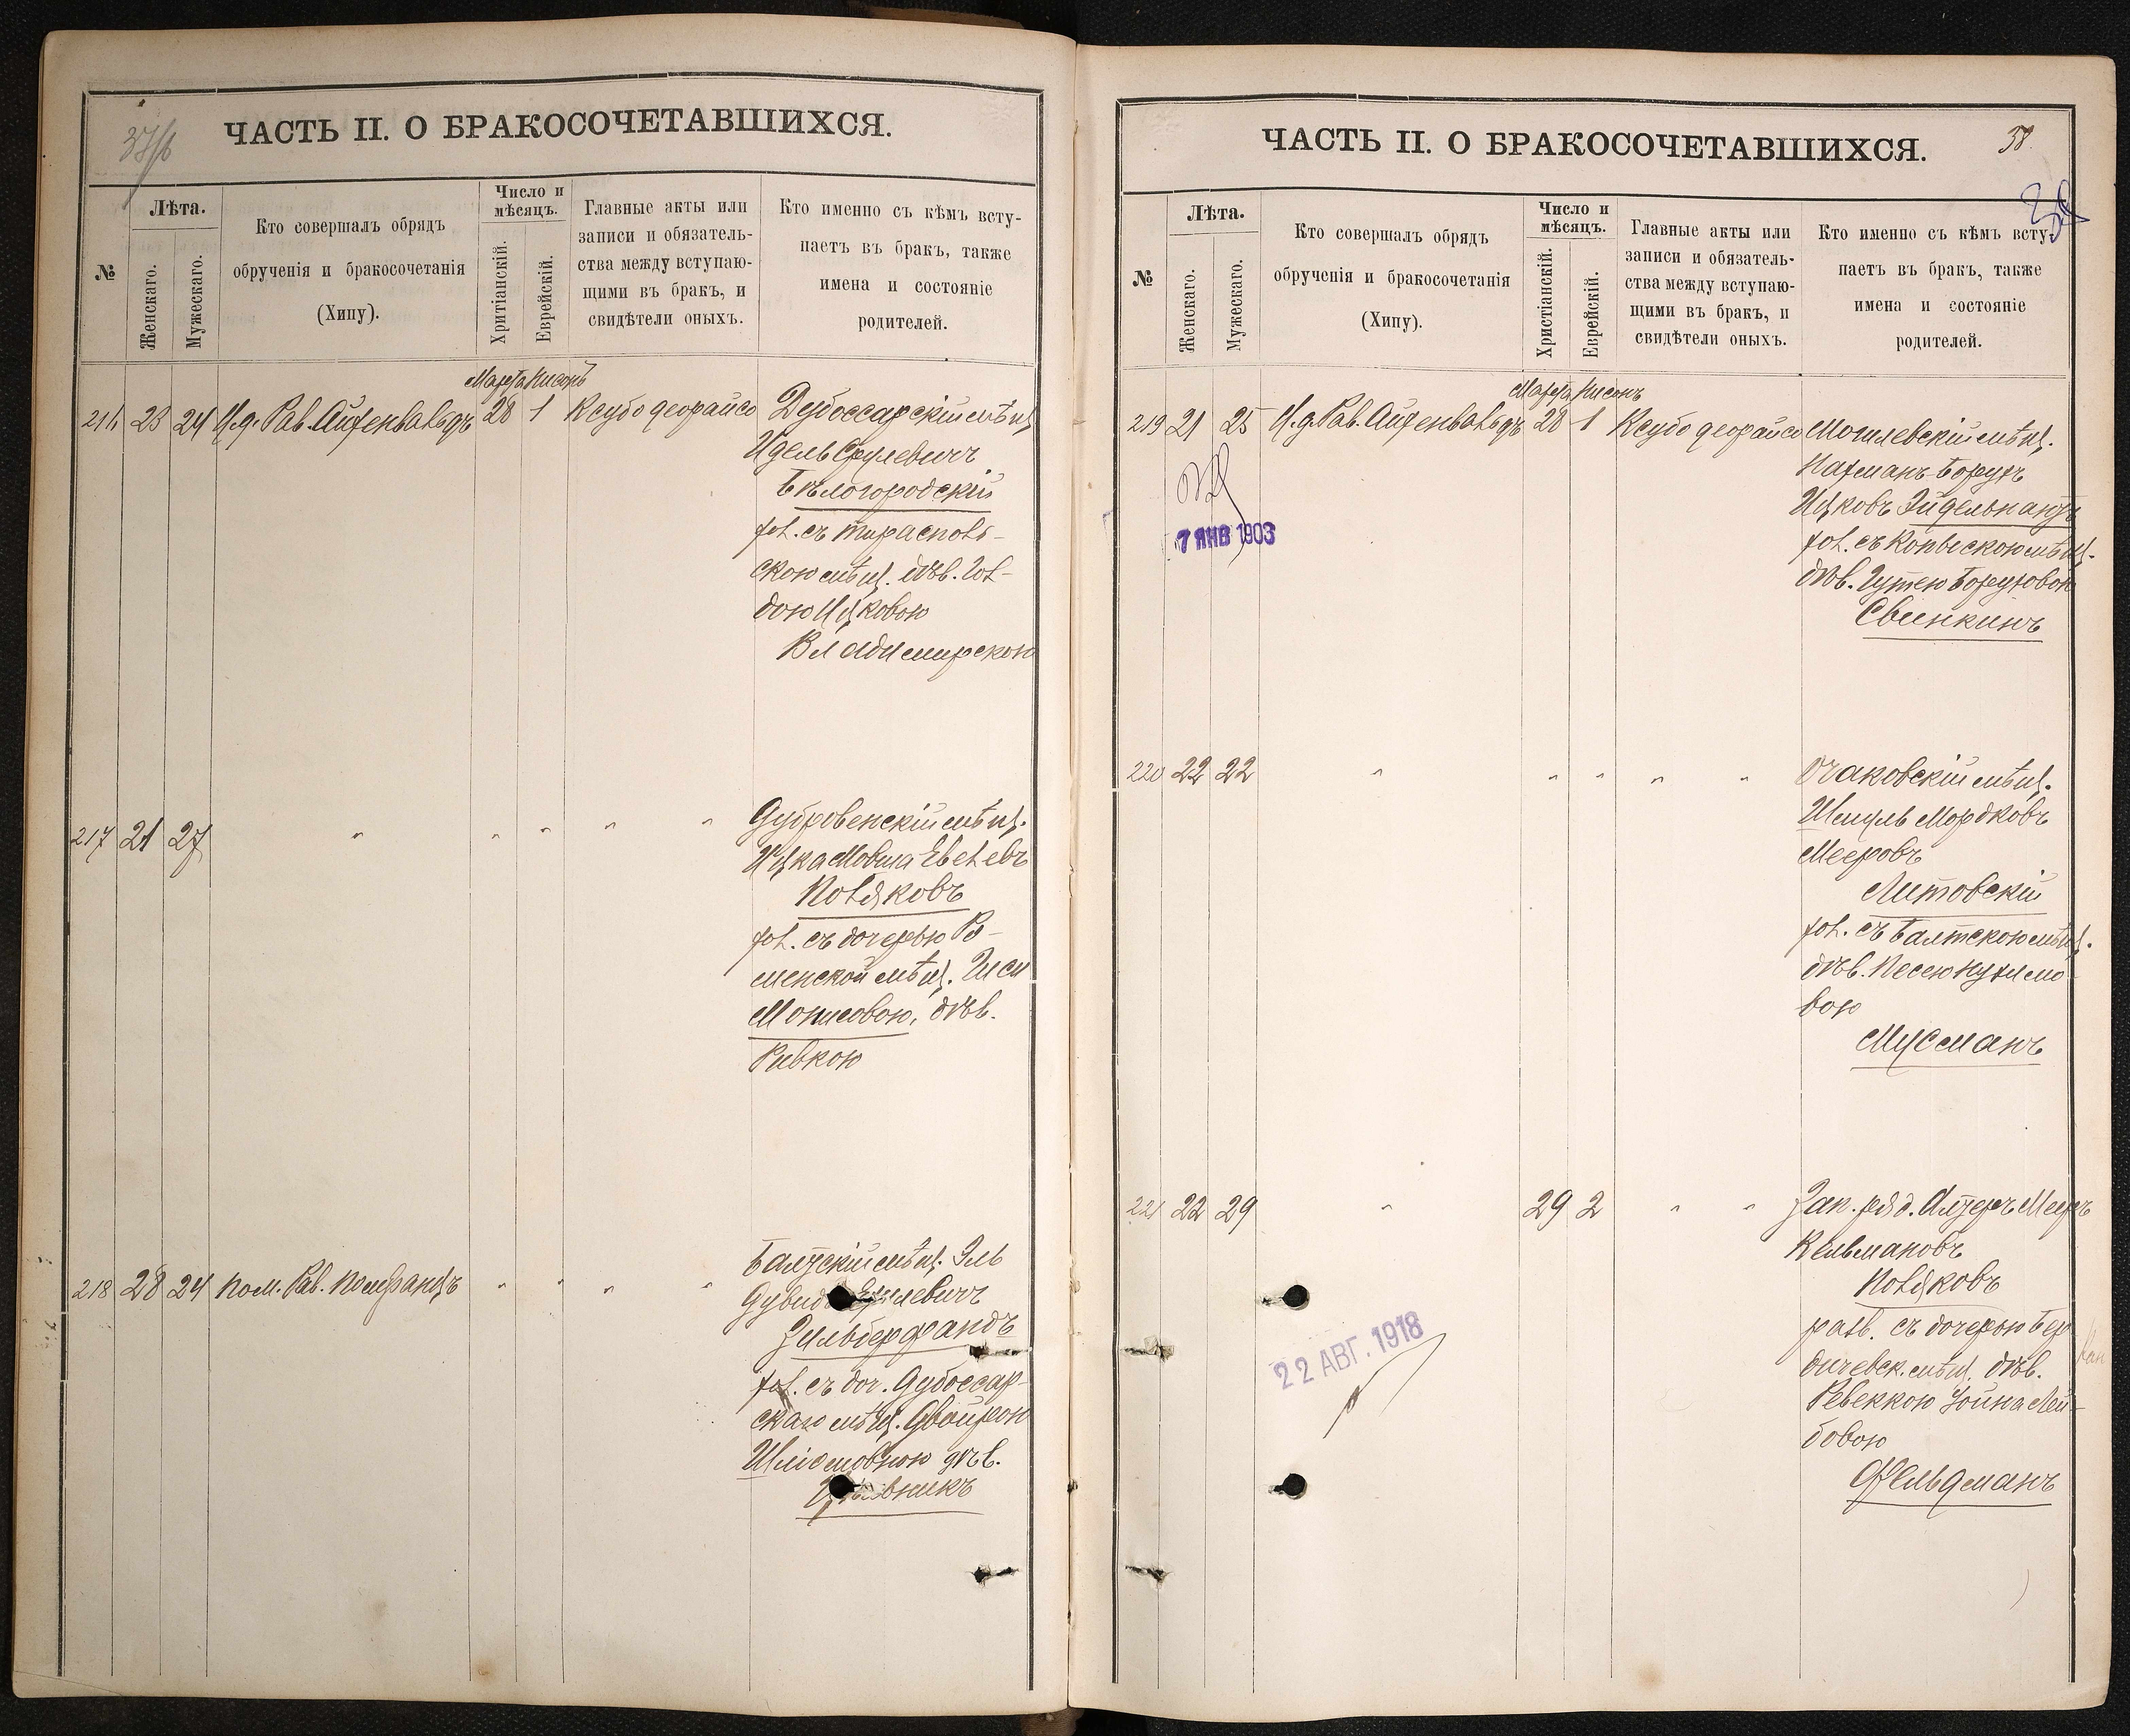 37/б
ЧАСТЬ II. О БРАКОСОЧЕТАВШИХСЯ.
№
Лѣта.
Женскаго.
Мужескаго.
Кто совершалъ обрядъ
обрученія и бракосочетанія
(Хипу).
Число и
мѣсяцъ.
Хритіанскій.
Еврейскій.
Главные акты или
записи и обязатель-
ства между вступаю-
щими въ бракъ, и
свидѣтели оныхъ.
Кто именно съ кѣмъ всту-
паетъ въ бракъ, также
имена и состояніе
родителей.
Марта Нисонъ
216 23 24 И.д. Рав. Айхенвальдъ 28 1 Ксубо деорайсо Дубоссарскій мѣщ.
Идель Срулевичъ
Бѣлогородскій
хол. съ тирасполь-
скою мѣщ. дѣв. Гол-
дою Ицковою
Владимирскою
217 21 27 " " " " " Дубровенскій мѣщ.
Ицка Мовша Евелевъ
Поляковъ
хол. съ дочерью Ро-
менской мѣщ. Гиси
Монисовою, дѣв.
Ривкою
218 28 24 Пом. Рав. Померанцъ " " " " Балтскій мѣщ. Эль
Дувидъ
Зильберфандъ
хол. съ доч. Дубоссар-
скаго мѣщ. Двойрою
Шліомовною дѣв.
ЧАСТЬ II. О БРАКОСОЧЕТАВШИХСЯ.
38.
№
Лѣта.
Женскаго.
Мужескаго.
Кто совершалъ обрядъ
обрученія и бракосочетанія
(Хипу).
Число и
мѣсяцъ.
Христіанскій.
Еврейскій.
Главные акты или
записи и обязатель-
ства между вступаю-
щими въ бракъ, и
свидѣтели оныхъ.
Кто именно съ кѣмъ всту-
паетъ въ бракъ, также
имена и состояніе
родителей.
Марта Нисонъ
219 21 25 И.д. Рав. Айхенвальдъ 28 1 Ксубо деорайсо Могилевскій мѣщ.
Нахманъ Борухъ
Ицковъ Эйдельнантъ
хол. съ Копыскою мѣщ.
дѣв. Гутею Боруховою
Свинкинъ
7 ЯНВ 1903
220 22 22 " " " " " Очаковскій мѣщ.
Шмуль Мордковъ
Мееровъ
Литовскій
хол. съ Балтскою мѣщ.
дѣв. Песею Нухимо
вою
Мусманъ
221 22 29 " 29 2 " " Зап. ряд. Алтеръ Мееръ
Кельмановъ
Поляковъ
разв. съ дочерью Бер
дичевск. мѣщ. дѣв.
Ревеккою Іойна Лей-
бовою
Фельдманъ
22 АВГ. 1918